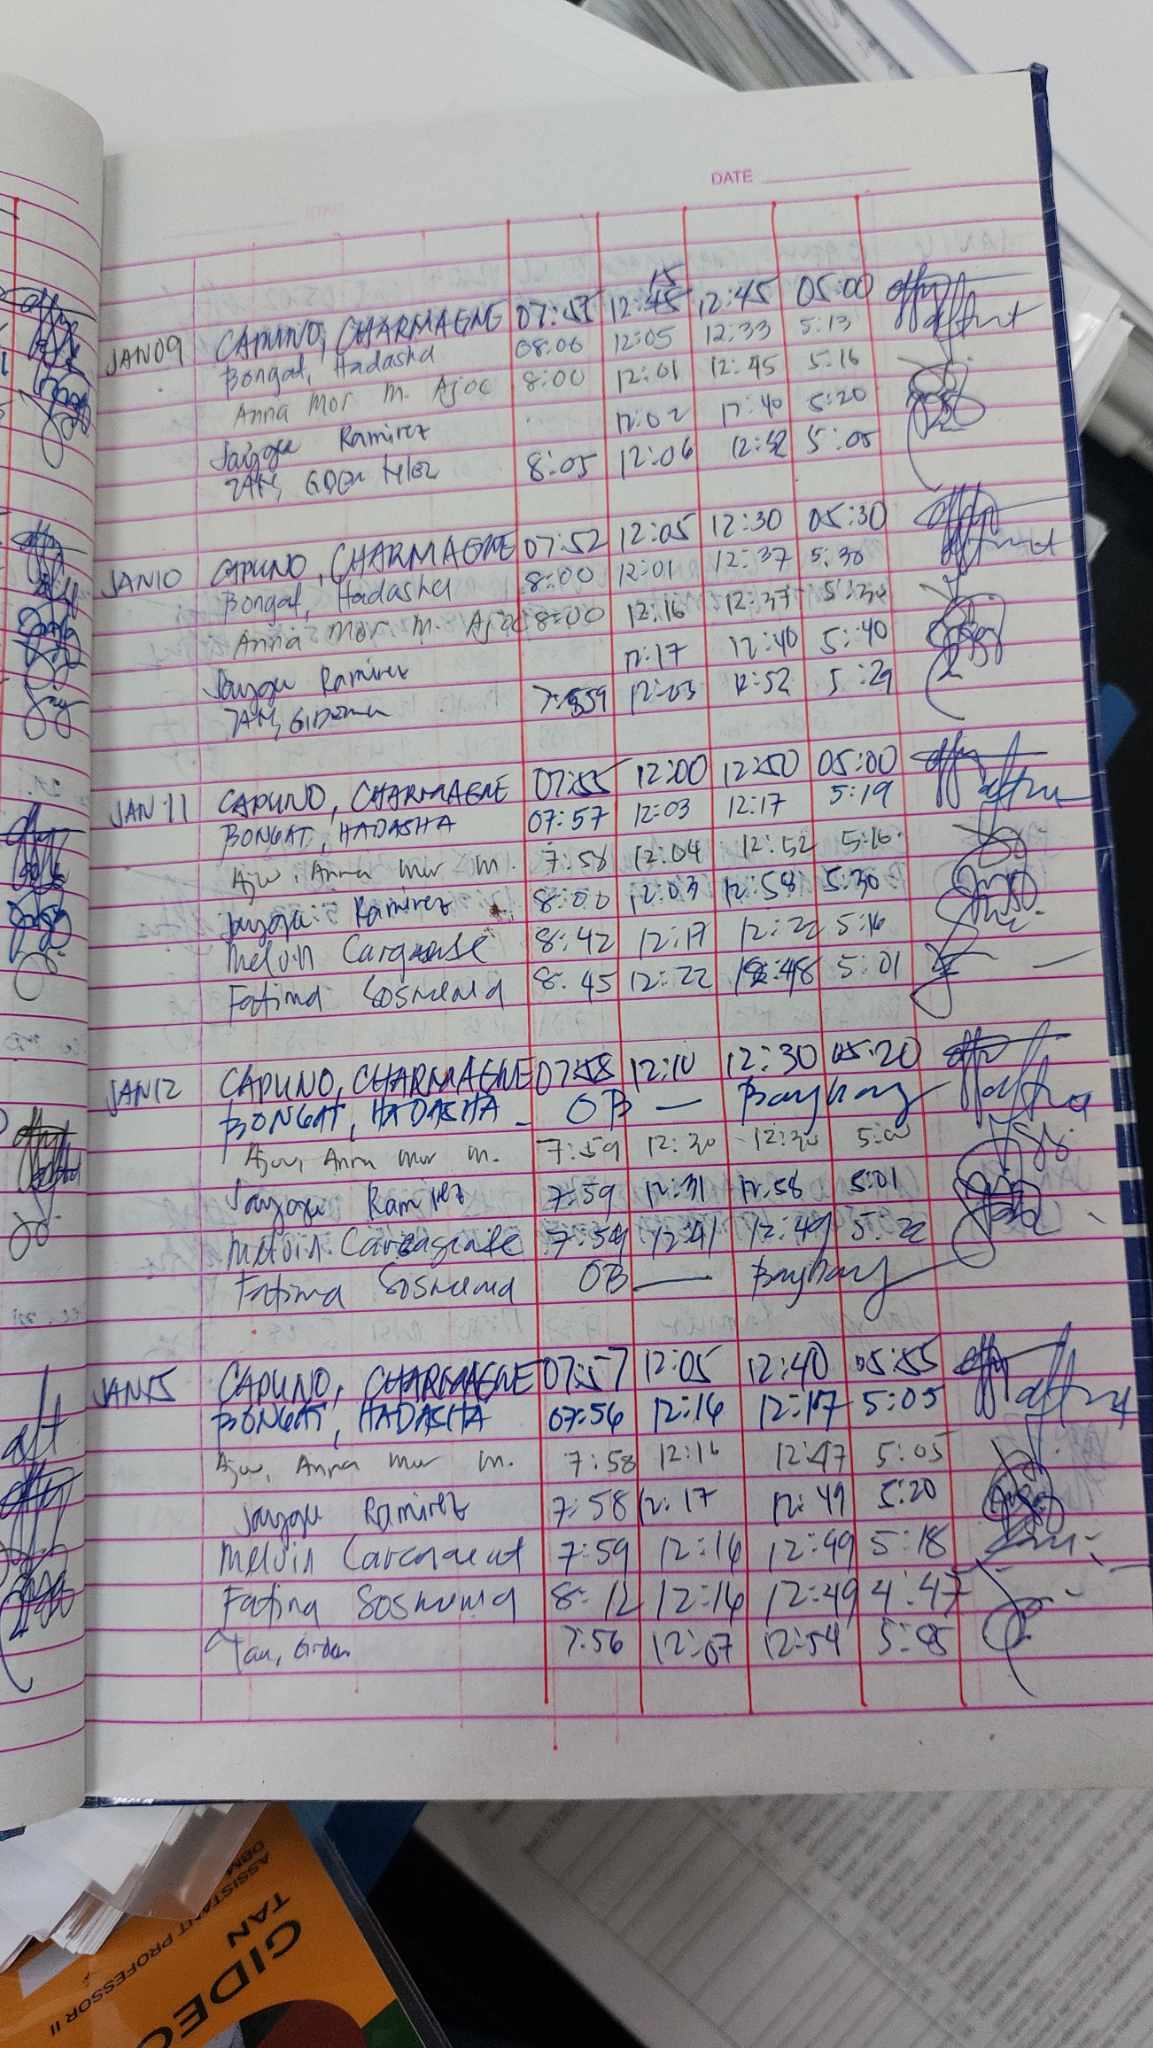 DATE
15
JAN 09 CAPUNO, CHARMAGNE 07:57 12:45 12:45 05:00
Bongat, Hadasha 08:00 12:05 12:33 5:13
Anna Mor M. Ajoc 8:00 12:01 12:45 5:16
Ramirez 12:02 12:40 5:20
TAN, 8:05 12:06 12:52 5:05
JAN 10 CAPUNO, CHARMAGNE 07:52 12:05 12:30 05:30
Bongat, Hadasha 8:00 12:01 12:37 5:30
Anna Mor M. Ajoc 8:00 12:16 12:37 5:30
Ramirez 12:17 12:40 5:40
TAN, 7:59 12:03 12:52 5:29
JAN 11 CAPUNO, CHARMAGNE 07:55 12:00 12:50 05:00
BONGAT, HADASHA 07:57 12:03 12:17 5:19
Ajoc, Anna Mor M. 7:58 12:04 12:52 5:16
Ramirez 8:00 12:03 12:58 5:30
Melvin 8:42 12:17 12:22 5:16
Fatima Sosmena 8:45 12:22 12:48 5:01
JAN 12 CAPUNO, CHARMAGNE 07:58 12:10 12:30 05:20
BONGAT, HADASHA - OB — Baybay
Ajoc, Anna Mor M. 7:59 12:30 12:30 5:00
Ramirez 7:59 12:31 12:58 5:01
Melvin 7:59 12:41 12:49 5:22
Fatima Sosmena OB — Baybay
JAN 15 CAPUNO, CHARMAGNE 07:57 12:05 12:40 05:55
BONGAT, HADASHA 07:56 12:16 12:17 5:05
Ajoc, Anna Mor M. 7:58 12:16 12:47 5:05
Ramirez 7:58 12:17 12:49 5:20
Melvin 7:59 12:16 12:49 5:18
Fatima Sosmena 8:12 12:16 12:49 4:47
Tan, Gideon 7:56 12:07 12:54
GIDEO
TAN
ASSISTANT PROFESSOR II
DBM